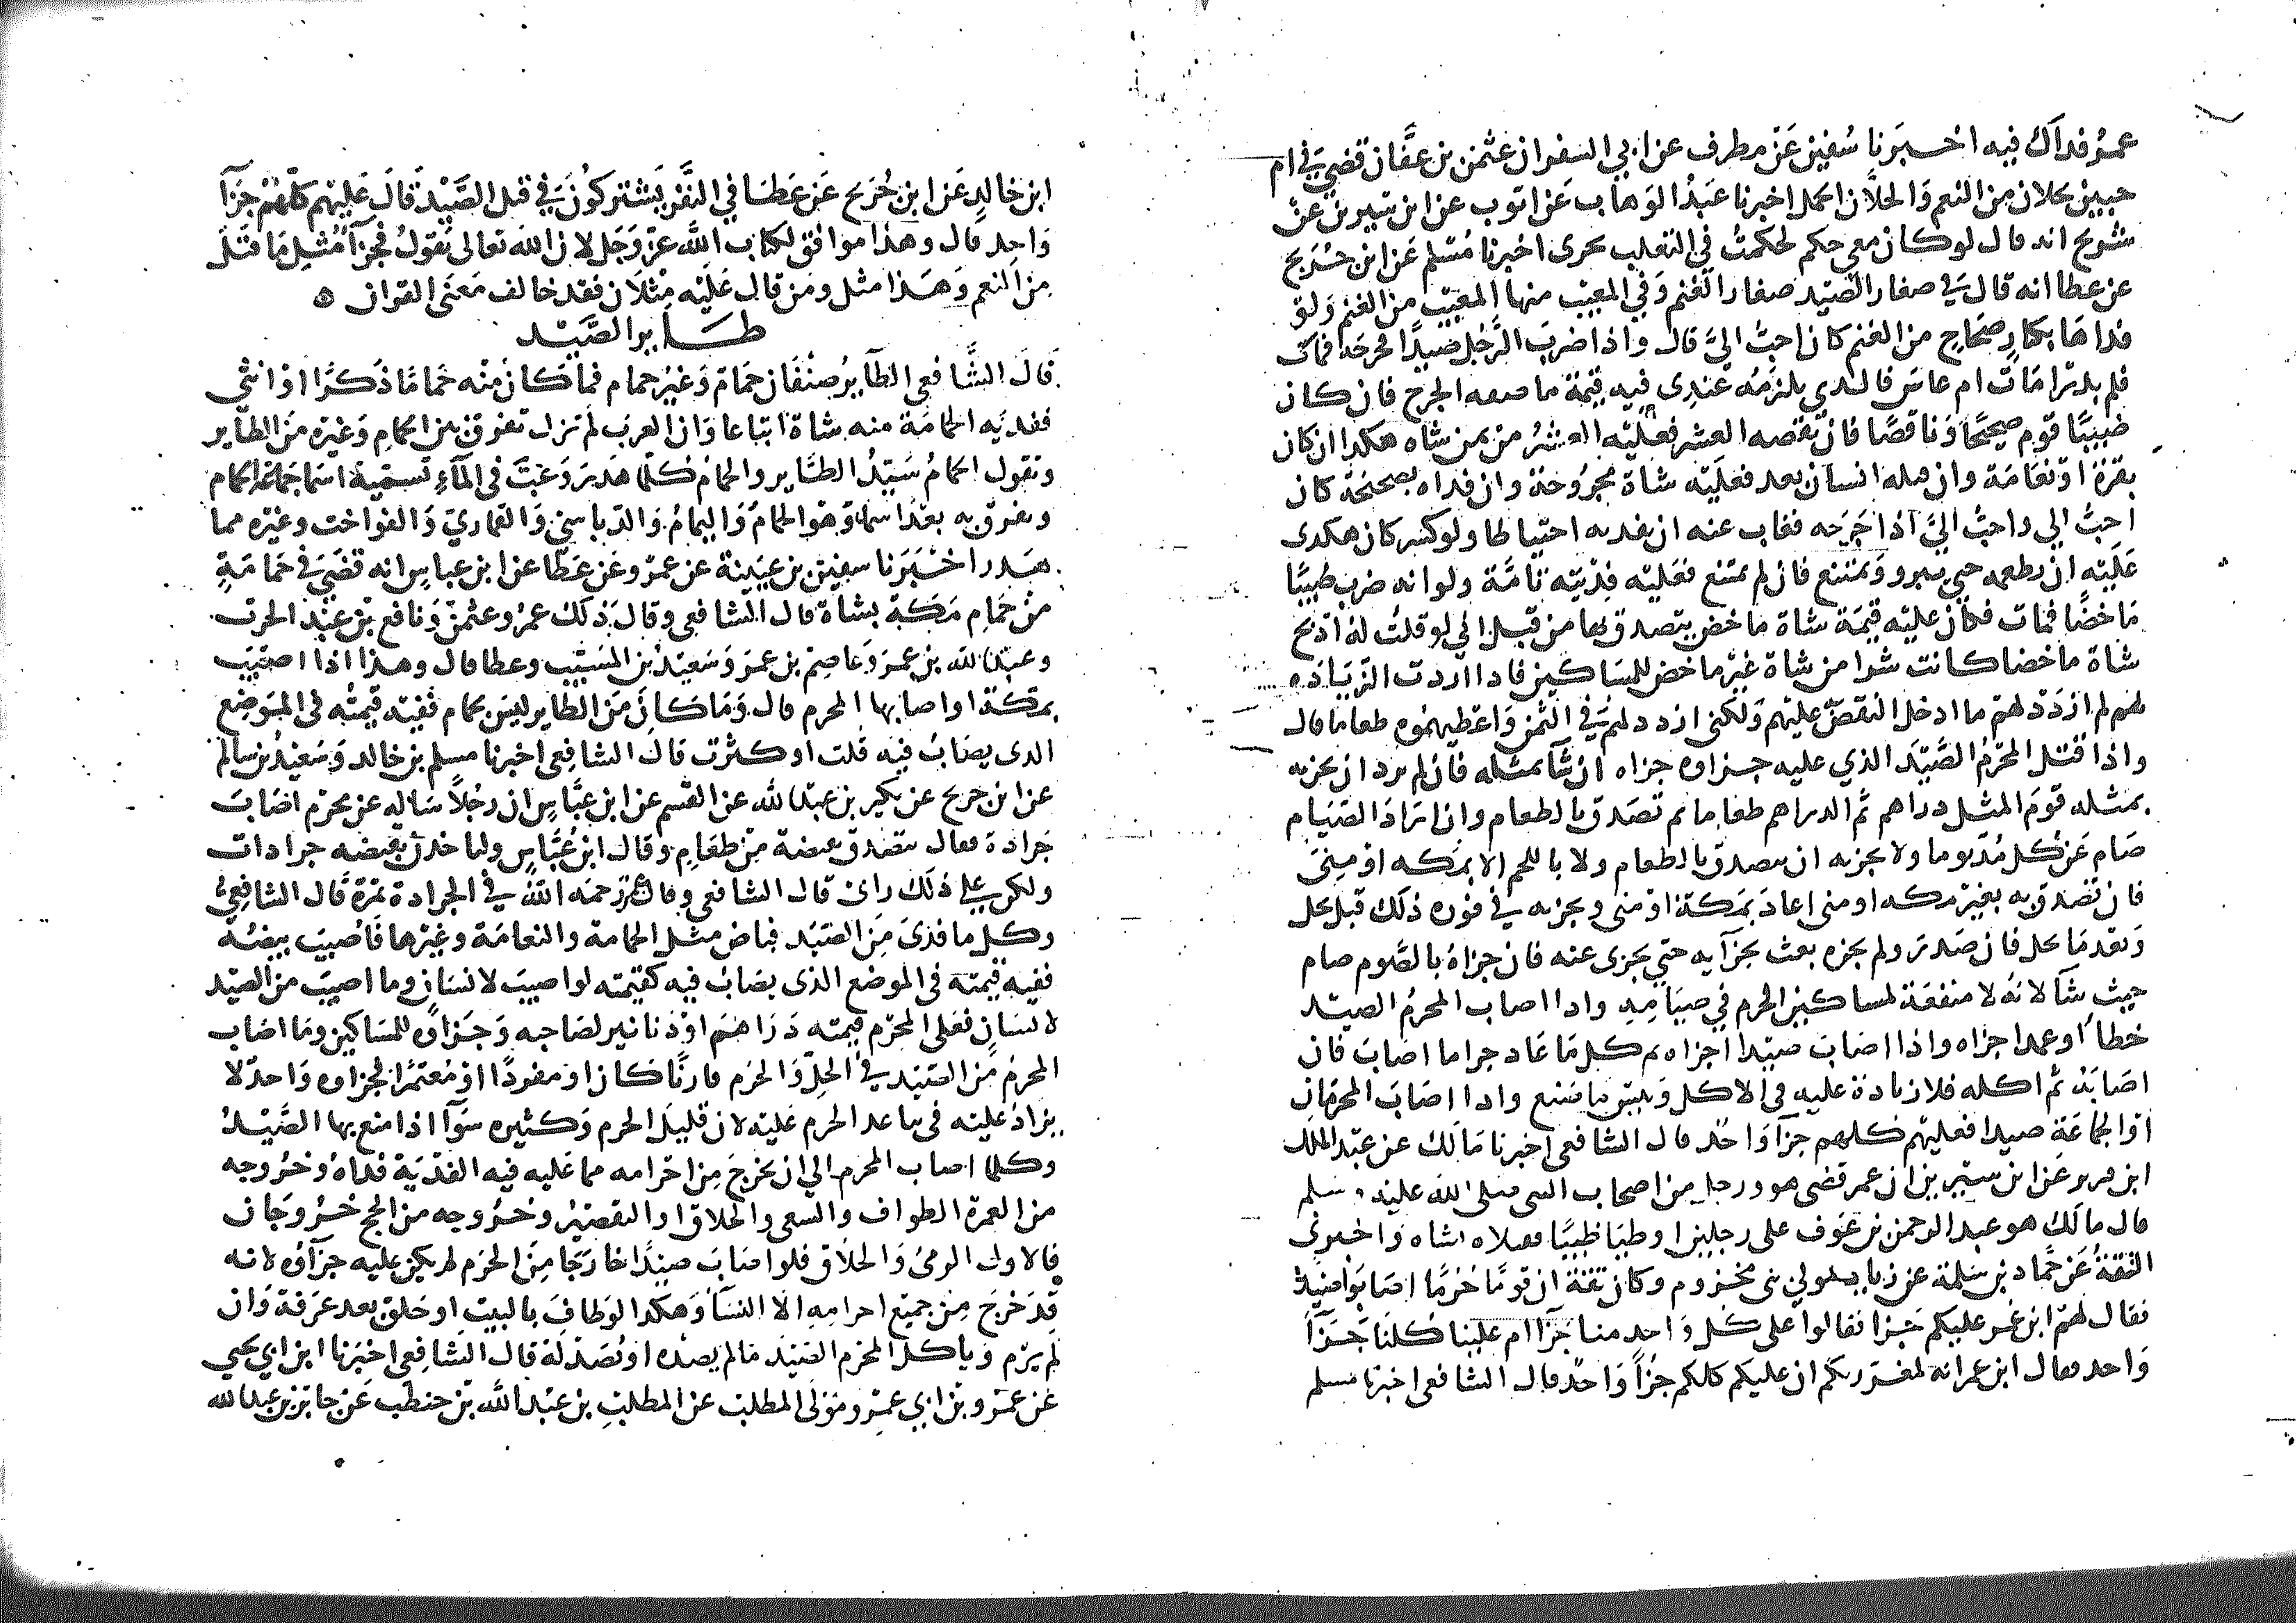 عمر فذاك فيه اخبرنا سفين عن مطرف عن ابي السفر ان عثمن بن عفان قضى في ام
حبين بحلان من النعم والحلان الحمل اخبرنا عبد الوهاب عن ايوب عن ابن سيرين عن
شريح انه قال لو كان معي حكم لحكمت في الثعلب بجدى اخبرنا مسلم عن ابن جريج
عن عطا انه قال في صغار الصيد صغار الغنم وفي المعيب منها المعيب من الغنم ولو
فداها بكار صحاح من الغنم كان احب الي قال واذا ضرب الرجل صيدا فجرحه فمات
فلم يدر امات ام عاش فالذي يلزمه عندى فيه قيمة ما نقصه الجرح فان كان
ظبيا قوم صحيحا وناقصا فان نقصه العشر فعليه العشر من ثمن شاه هكذا ان كان
بقرة او نعامة وان قتله انسان بعد فعليه شاة مجروحة وان فداه بصحيحة كان
احب الي واحب الي اذا جرحه فغاب عنه ان يفديه احتياطا ولو كسره كان هكذى
عليه ان يطعمه حتى يبرو ويمتنع فان لم يمتنع فعليه فديته تامة ولو انه ضرب ظبيا
ماخضا فمات فكان عليه قيمة شاة ماخض يتصدق بها من قبل اني لو قلت له اذبح
شاة ماخضا كانت شرا من شاة غير ماخض للمساكين فاذا اردت الزياده
لهم لم ازدد لهم ما ادخل النقص عليهم ولكني ازداد لهم في الثمن واعطيهموه طعاما قال
واذا قتل المحرم الصيد الذي عليه جزاوه جزاه ان شا بمثله فان لم يرد ان يجزيه
بمثله قوم المثل دراهم ثم الدراهم طعاما ثم تصدق بالطعام وان اراد الصيام
صام عن كل مد يوما ولا يجزيه ان يتصدق بالطعام ولا باللحم الا بمكه او منى
فان تصدق به بغير مكه او منى اعاد بمكة او منى ويجزيه في فوره ذلك قبل يحل
وبعد ما يحل فان صدر ولم يجزه بعث بجزآيه حتى يجزى عنه فان جزاه بالصوم صام
حيث شآ لانه لا منفعة لمساكين الحرم في صيامه واذا اصاب المحرم الصيد
خطأ او عمدا جزاه واذا اصاب صيدا جزاه ثم كل ما عاد جزا ما اصاب فان
اصابه ثم اكله فلا زيادة عليه في الاكل وبيس ما صنع واذا اصاب المحرمان
او الجماعة صيدا فعليهم كلهم جزآ واحد قال الشافعي اخبرنا مالك عن عبد الملك
ابن قرير عن ابن سيرين ان عمر قضى هو ورجل من اصحاب النبي صلى الله عليه وسلم
قال مالك هو عبد الرحمن بن عوف على رجلين اوطيا ظبيا فقتلاه بشاه واخبرنى
الثقة عن حماد بن سلمة عن زياد مولي بنى مخزوم وكان ثقة ان قوما حرما اصابوا صيدا
فقال لهم ابن عمر عليكم جزا فقالوا على كل واحد منا جزآ ام علينا كلنا جزآ
واحد فقال ابن عمر انه لمغرر بكم ان عليكم كلكم جزآ واحد قال الشافعي اخبرنا مسلم
ابن خالد عن ابن جريج عن عطا في النفر يشتركون في قتل الصيد قال عليهم كلهم جزآ
واحد قال وهذا موافق لكتاب الله عز وجل لان الله تعالى يقول فجزآ مثل ما قتل
من النعم وهذا مثل ومن قال عليه مثلان فقد خالف معنى القران ه
طاير الصيد
قال الشافعي الطآير صنفان حمام وغير حمام فما كان منه حماما ذكرا او انثى
ففدية الحمامة منه شاة اتباعا وان العرب لم تزل تفرق بين الحمام وغيره من الطاير
وتقول الحمام سيد الطاير والحمام كلما هدر وعب في المآء تسميه اسما جماعه الحمام
وتفرق به بعد اسماوه وهو الحمام واليمام والدباسي والقماري والفواخت وغيره مما
هدر اخبرنا سفين بن عيينة عن عمرو عن عطا عن ابن عباس انه قضى في حمامة
من حمام مكة بشاة قال الشافعي وقال ذلك عمر وعثمن ونافع بن عبد الحرث
وعبد الله بن عمر وعاصم بن عمر وسعيد بن المسيب وعطا قال وهذا اذا اصيب
بمكة او اصابها المحرم قال وما كان من الطاير ليس بحمام ففيه قيمته في الموضع
الذى يصاب فيه قلت او كثرت قال الشافعي اخبرنا مسلم بن خالد وسعيد بن سالم
عن ابن جريج عن بكير بن عبد الله عن القسم عن ابن عباس ان رجلا ساله عن محرم اصاب
جرادة فقال يتصدق بقبضة من طعام وقال ابن عباس ولياخذن بقبضه جرادات
ولكن على ذلك راى قال الشافعي وقال عمر رحمه الله في الجرادة تمرة قال الشافعي
وكل ما فدى من الصيد فباض مثل الحمامة والنعامة وغيرها فاصيب بيضه
ففيه قيمته في الموضع الذى يصاب فيه كقيمته لو اصيب لانسان وما اصيب من الصيد
لانسان فعلى المحرم قيمته دراهم او دنانير لصاحبه وجزاوه للمساكين وما اصاب
المحرم من الصيد في الحل والحرم قارنا كان او مفردا او معتمرا فجزاوه واحد لا
يزاد عليه في تباعد الحرم عليه لان قليل الحرم وكثيره سوآ اذا منع بها الصيد
وكلما اصاب المحرم الي ان يخرج من احرامه مما عليه فيه الفدية فداه وخروجه
من العمرة الطواف والسعى والحلاق او التقصير وخروجه من الحج خروجان
فالاول الرمى والحلاق فلو اصاب صيدا خارجا من الحرم لم يكن عليه جزآوه لانه
قد خرج من جميع احرامه الا النسآ وهكذا لو طاف بالبيت او حلق بعد عرفة وان
لم يرم وياكل المحرم الصيد مالم يصده او يصد له قال الشافعي اخبرنا ابن ابي يحيى
عن عمرو بن ابي عمرو مولى المطلب عن المطلب بن عبد الله بن حنطب عن جابر بن عبد الله